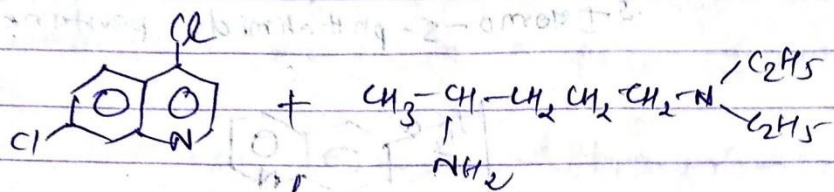 Cl
Cl N + CH3-CH-CH2 CH2-CH2-N C2H5
C2H5
NH2